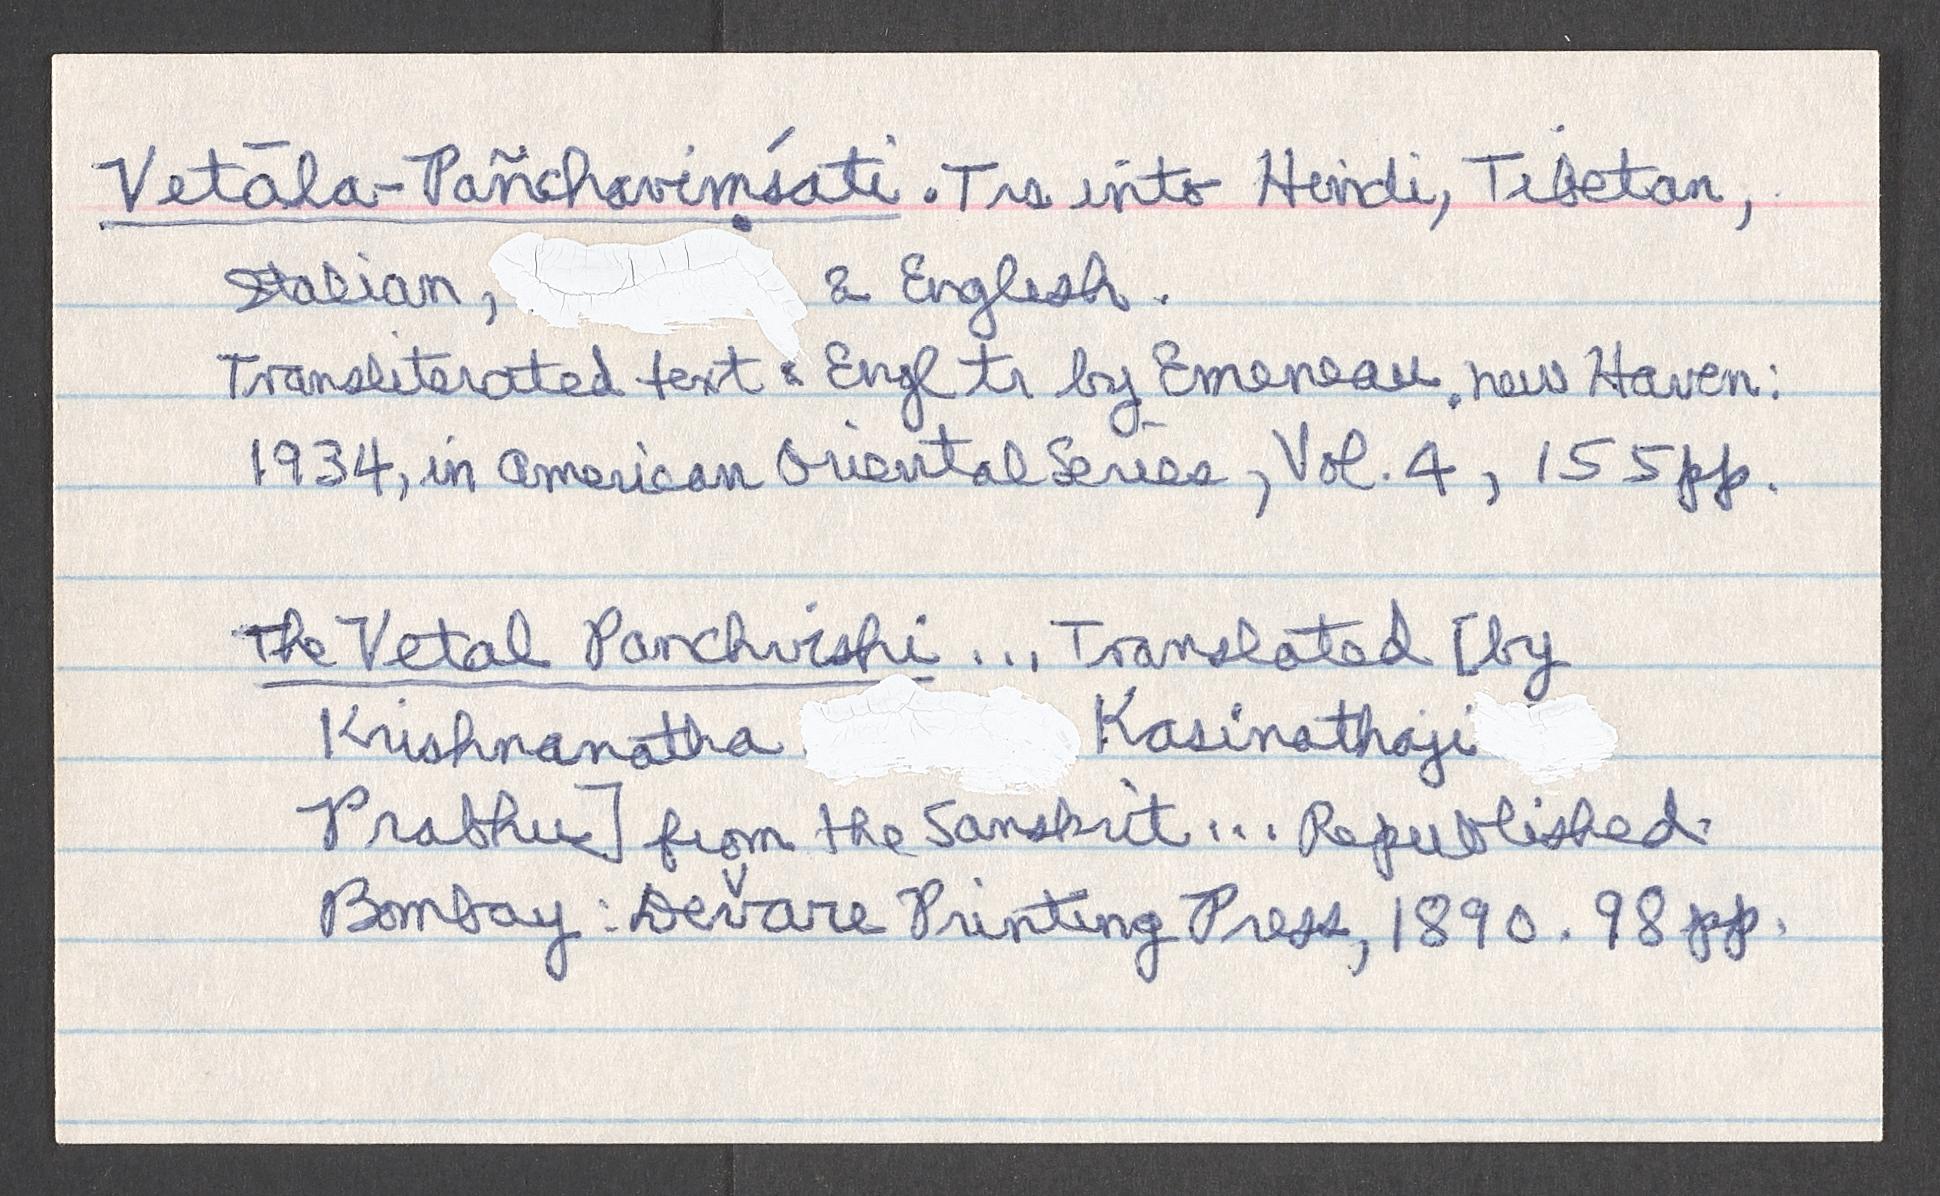 Vetāla-Pañchaviṃśati. Trs into Hindi, Tibetan,
Italian, & English.
Transliterated text & Engl tr by Emeneau. New Haven:
1934, in American Oriental Series, Vol. 4, 155pp.
The Vetal Panchvishi ... Translated [by
Krishnanatha Kasinathaji
Prabhu] from the Sanskrit ... Republished.
Bombay: Devare Printing Press, 1890. 98pp.